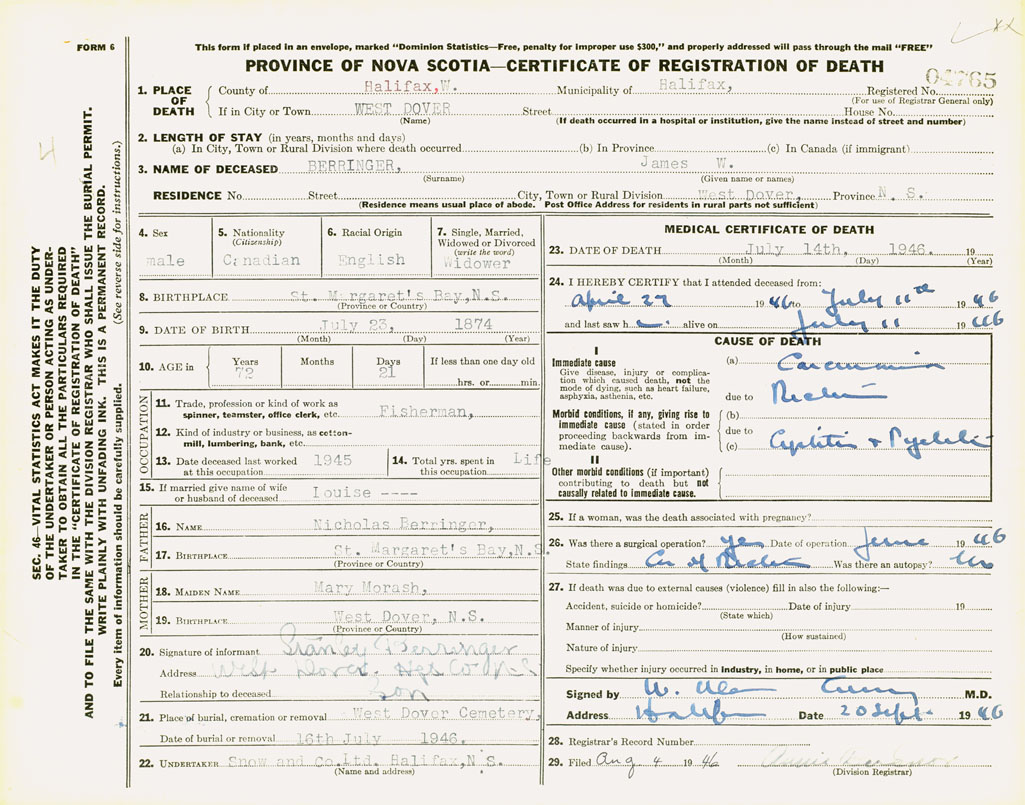 FORM 6
This form if placed in an envelope, marked "Dominion Statistics—Free, penalty for improper use $300," and properly addressed will pass through the mail "FREE"
PROVINCE OF NOVA SCOTIA—CERTIFICATE OF REGISTRATION OF DEATH
04765
1. PLACE OF DEATH
County of Halifax,W. Municipality of Halifax, Registered No.
(For use of Registrar General only)
If in City or Town WEST DOVER Street House No.
(Name) (If death occurred in a hospital or institution, give the name instead of street and number)
2. LENGTH OF STAY (in years, months and days)
(a) In City, Town or Rural Division where death occurred (b) In Province (c) In Canada (if immigrant)
3. NAME OF DECEASED BERRINGER, James W.
(Surname) (Given name or names)
RESIDENCE No. Street City, Town or Rural Division West Dover, Province N. S.
(Residence means usual place of abode. Post Office Address for residents in rural parts not sufficient)
4. Sex
male
5. Nationality
(Citizenship)
Canadian
6. Racial Origin
English
7. Single, Married,
Widowed or Divorced
(write the word)
Widower
8. BIRTHPLACE St. Margaret's Bay,N.S.
(Province or Country)
9. DATE OF BIRTH July 23, 1874
(Month) (Day) (Year)
10. AGE in
Years
72
Months
Days
21
If less than one day old
hrs. or min.
OCCUPATION
11. Trade, profession or kind of work as
spinner, teamster, office clerk, etc. Fisherman,
12. Kind of industry or business, as cotton-
mill, lumbering, bank, etc.
13. Date deceased last worked
at this occupation 1945
14. Total yrs. spent in
this occupation Life
15. If married give name of wife
or husband of deceased Louise ----
FATHER
16. NAME Nicholas Berringer,
17. BIRTHPLACE St. Margaret's Bay,N.S.
(Province or Country)
MOTHER
18. MAIDEN NAME Mary Morash,
19. BIRTHPLACE West Dover, N.S.
(Province or Country)
20. Signature of informant Stanley Berringer
Address West Dover, Hfx Co N.S
Relationship to deceased Son
21. Place of burial, cremation or removal West Dover Cemetery,
Date of burial or removal 16th July 1946.
22. UNDERTAKER Snow and Co.Ltd. Halifax,N.S.
(Name and address)
MEDICAL CERTIFICATE OF DEATH
23. DATE OF DEATH July 14th, 1946. 19
(Month) (Day) (Year)
24. I HEREBY CERTIFY that I attended deceased from:
April 27 1946 to July 11th 1946
and last saw h alive on July 11 1946
CAUSE OF DEATH
I
Immediate cause
Give disease, injury or complica-
tion which caused death, not the
mode of dying, such as heart failure,
asphyxia, asthenia, etc.
(a) Carcinoma
due to Rectum
Morbid conditions, if any, giving rise to
immediate cause (stated in order
proceeding backwards from im-
mediate cause).
(b)
due to
(c) Cystitis + Pyelitis
II
Other morbid conditions (if important)
contributing to death but not
causally related to immediate cause.
25. If a woman, was the death associated with pregnancy?
26. Was there a surgical operation? yes Date of operation June 1946
State findings Ca of Rectum Was there an autopsy? No
27. If death was due to external causes (violence) fill in also the following:—
Accident, suicide or homicide? Date of injury 19
(State which)
Manner of injury
(How sustained)
Nature of injury
Specify whether injury occurred in industry, in home, or in public place
Signed by W. Alan Curry M.D.
Address Halifax Date 20 Sept. 1946
28. Registrar's Record Number
29. Filed Aug 4 1946
(Division Registrar)
SEC. 46—VITAL STATISTICS ACT MAKES IT THE DUTY
OF THE UNDERTAKER OR PERSON ACTING AS UNDER-
TAKER TO OBTAIN ALL THE PARTICULARS REQUIRED
IN THE "CERTIFICATE OF REGISTRATION OF DEATH"
AND TO FILE THE SAME WITH THE DIVISION REGISTRAR WHO SHALL ISSUE THE BURIAL PERMIT.
WRITE PLAINLY WITH UNFADING INK. THIS IS A PERMANENT RECORD.
Every item of information should be carefully supplied. (See reverse side for instructions.)